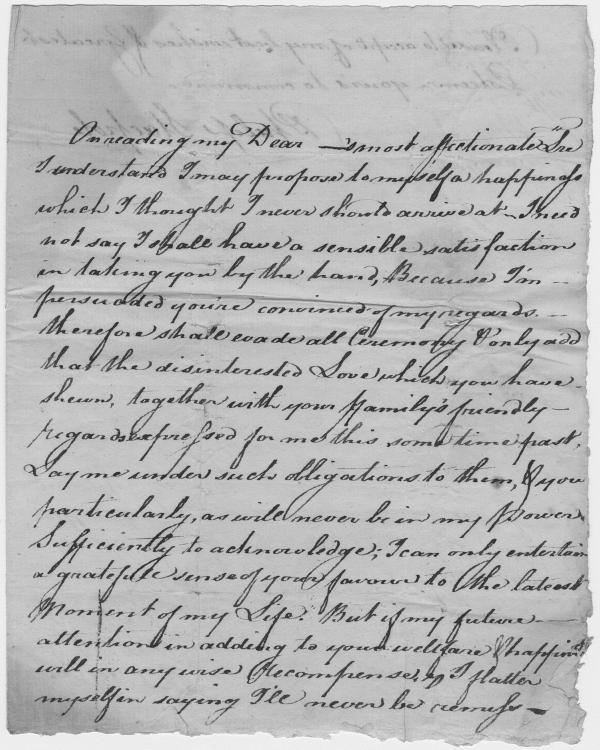 On reading my Dear —'s most affectionate
I understand I may propose to myself a happiness
which I thought I never should arrive at — I need
not say I shall have a sensible satisfaction
in taking you by the hand, Because I'm —
persuaded you're convinced of my regards. —
therefore shall evade all Ceremony & only add
that the disinterested Love which you have
shewn, together with your Family's friendly —
regards expressed for me this some time past,
Lay me under such obligations to them, & you
particularly, as will never be in my power
Sufficiently to acknowledge; I can only entertain
a grateful sense of your favour to the latest
Moment of my Life. But if my future —
attention in adding to your wellfare & happiness
will in any wise Recompense, I flatter
myself in saying I'll never be remiss —